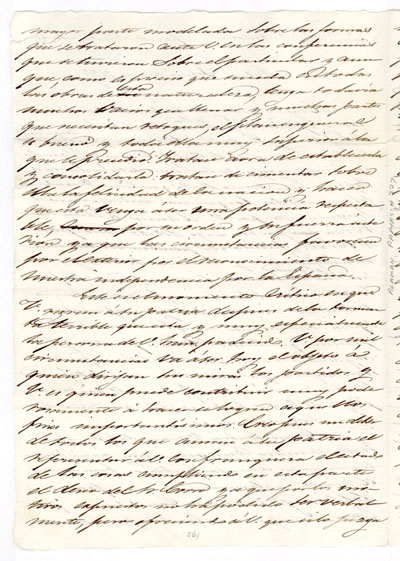 mayor parte modelada sobre las formas
que se trataron ante V. en las conferencias
que se tuvieron sobre el particular y aun
que como es preciso que suceda en todas
las obras de esta naturaleza, tenga todavia
muchos vacios que llenar y muchas partes
que necesitan retoque, el plan en general
es bueno y todo él muy superior á lo
que le precedió. Tratase ahora de establecerla
y consolidarla tratase de cimentar sobre
ella la felicidad de la nacion y hacer
que esta venga á ser una potencia respeta
ble, por su orden y tranquilidad inte
rior ya que las circunstancias favorecen
por el exterior por el reconocimiento de
nuestra independencia por la España.
Este es el momento critico en que
V. regresa á su patria despues de la tormen
ta terrible que esta y muy especialmente
la persona de V. han padecido. V. por mil
circunstancias va á ser hoy el objeto á
quien dirijan las miras los partidos y
V. es quien puede contribuir muy pode
rosamente á hacer se logren aquellos
fines importantisimos. Creo pues un deber
de todos los que aman á su patria el
representar á V. con franqueza el estado
de las cosas cumpliendo en esta parte
el deseo del Sr. Tornel ya que por los mo
tivos espuestos no ha podido ser verbal
mente, pero ofreciendo á V. que si lo juzga
561